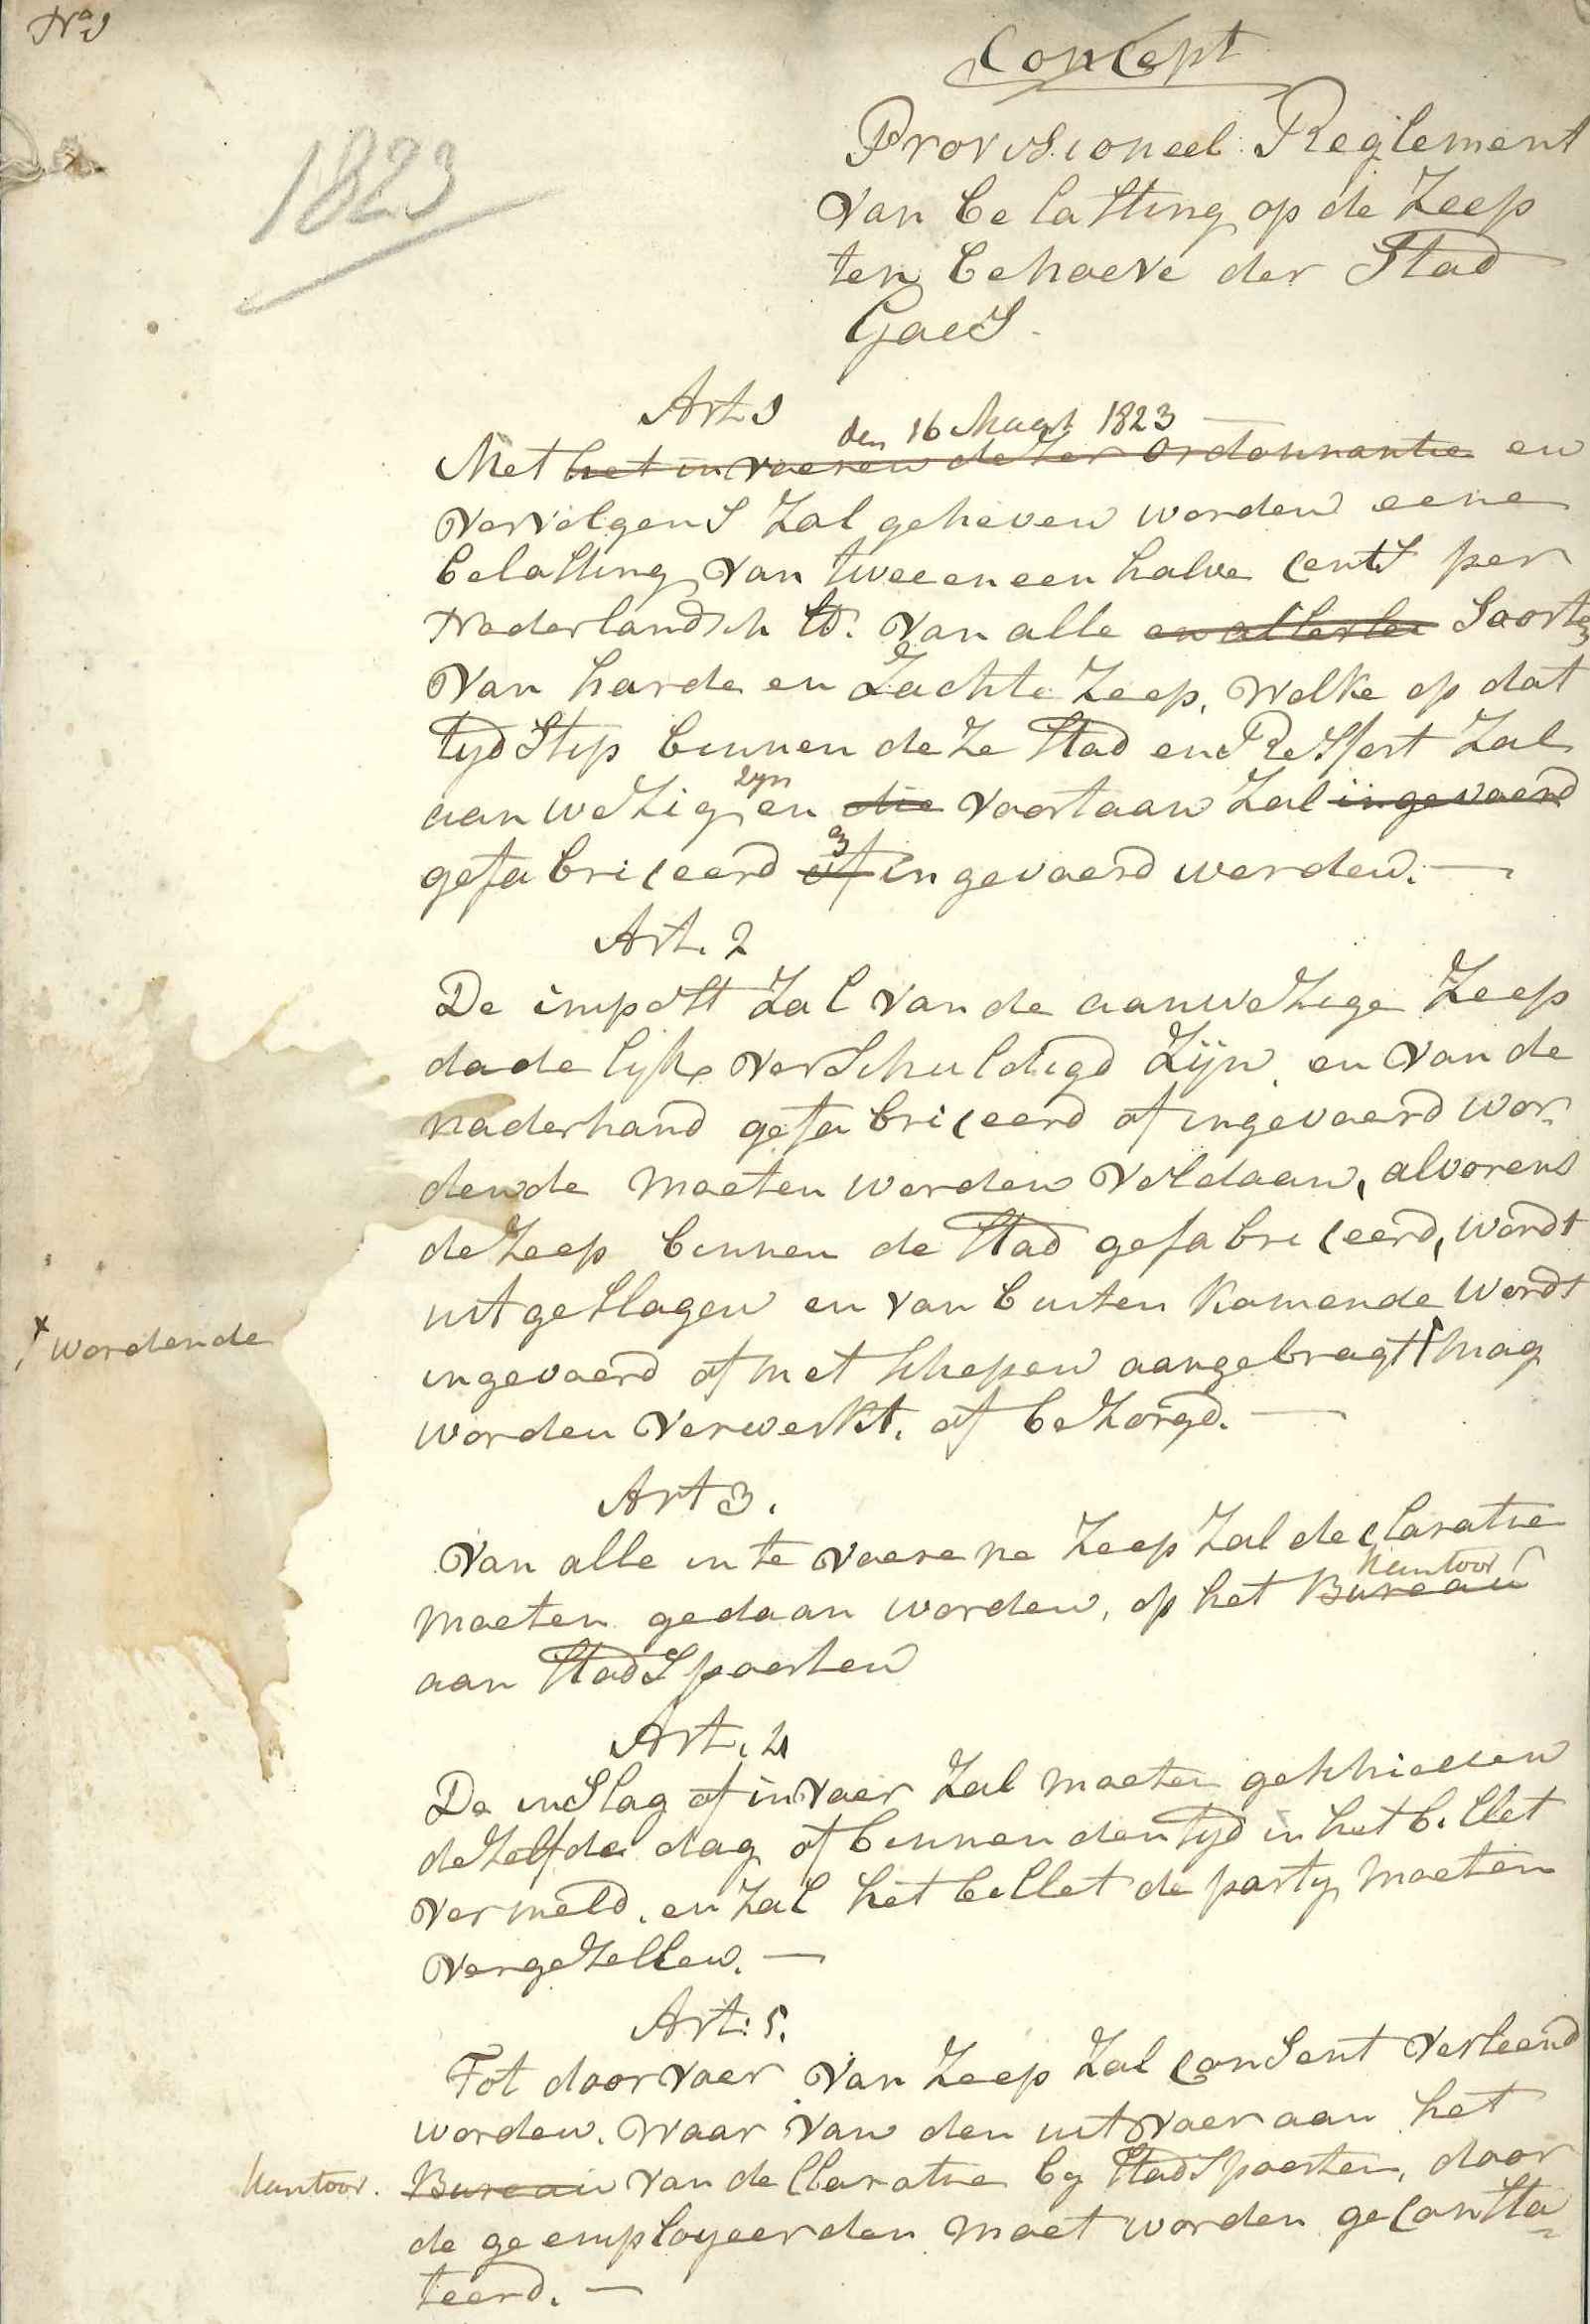 No 1
Concept
1823
Provisioneel Reglement
van belasting op de Zeep
ten behoeve der Stad
Goes.
Art 1
den 16 Maart 1823
Met het invoeren dezer ordonnantie en
vervolgens zal geheven worden eene
belasting van twee en een halve cents per
Nederlandsch lb. van alle en allerlei Soorten
van harde en Zachte Zeep, welke op dat
tijdstip binnen deze Stad en Ressort zal
zyn
aanwezig en die voortaan zal ingevoerd
gefabriceerd of ingevoerd worden. —
Art. 2
De impost zal van de aanwezige Zeep
dadelijk verschuldigd zijn en van de
naderhand gefabriceerd of ingevoerd wor-
dende moeten worden voldaan, alvorens
de Zeep binnen de Stad gefabriceerd, wordt
uitgeslagen en van buiten komende wordt
x wordende
ingevoerd of met schepen aangebragt mag
worden verwerkt, of bezorgd. —
Art 3.
Van alle in te voerene Zeep zal declaratie
kantoor
moeten gedaan worden, op het Bureau
aan Stads poorten
Art. 4
De inslag of invoer zal moeten geschieden
dezelfde dag of binnen den tyd in het billet
vermeld, en zal het billet de party moeten
vergezellen. —
Art: 5.
Tot doorvoer van Zeep zal consent verleend
worden, waar van den uitvoer aan het
kantoor.
Bureau van declaratie by Stads poorten, door
de geemployeerden moet worden geconsta-
teerd. —